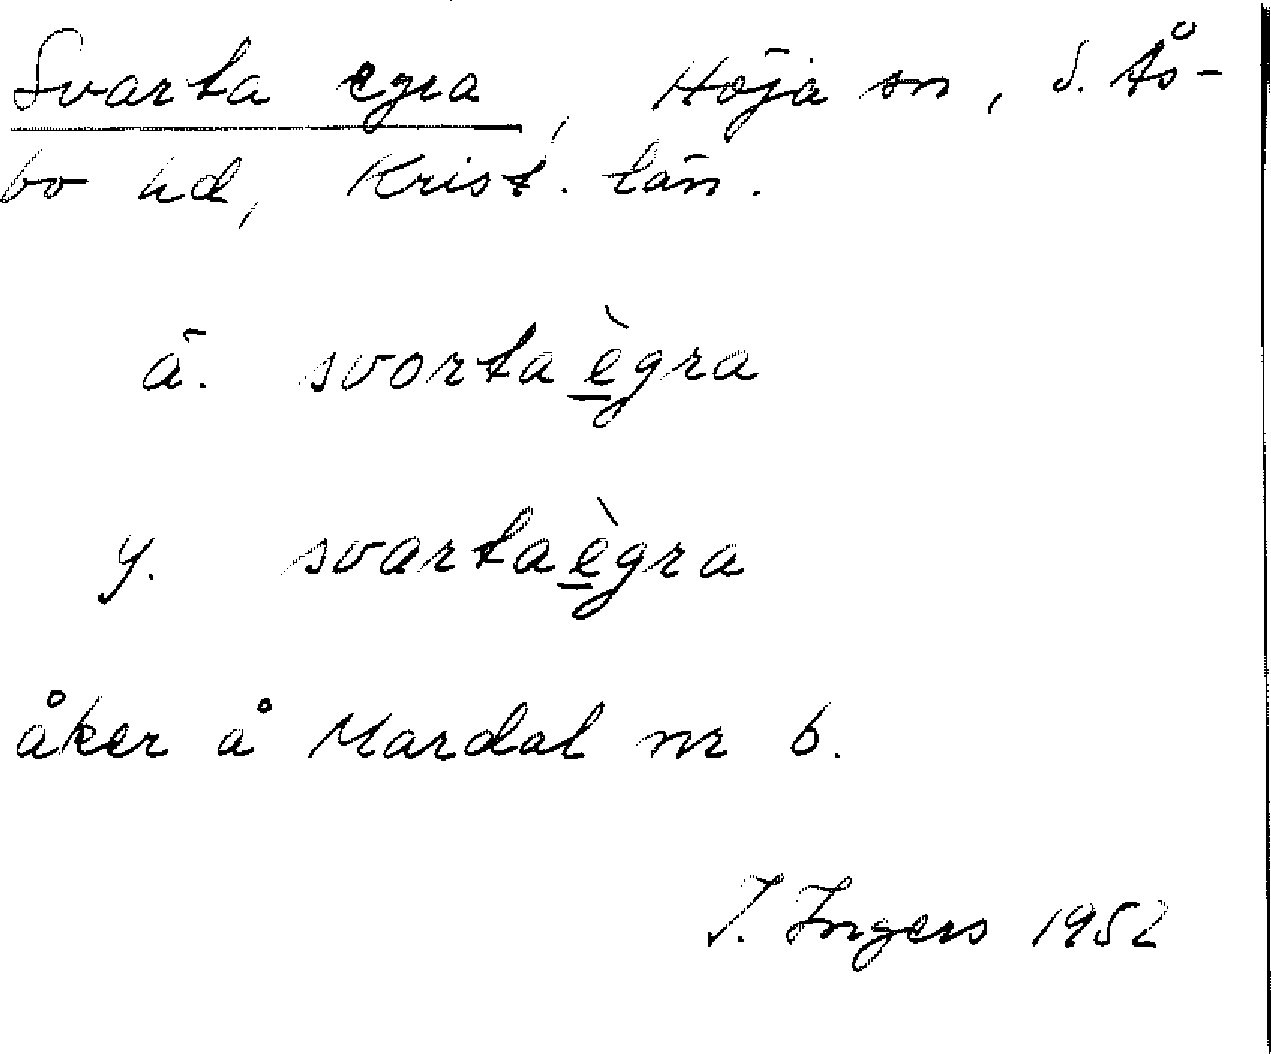 Svarta egra, Höja sn, S. Ås-
bo hd, Krist. län.
ä. svorta ègra
y. svarta ègra
åker å Mardal nr 6.
I. Ingers 1952